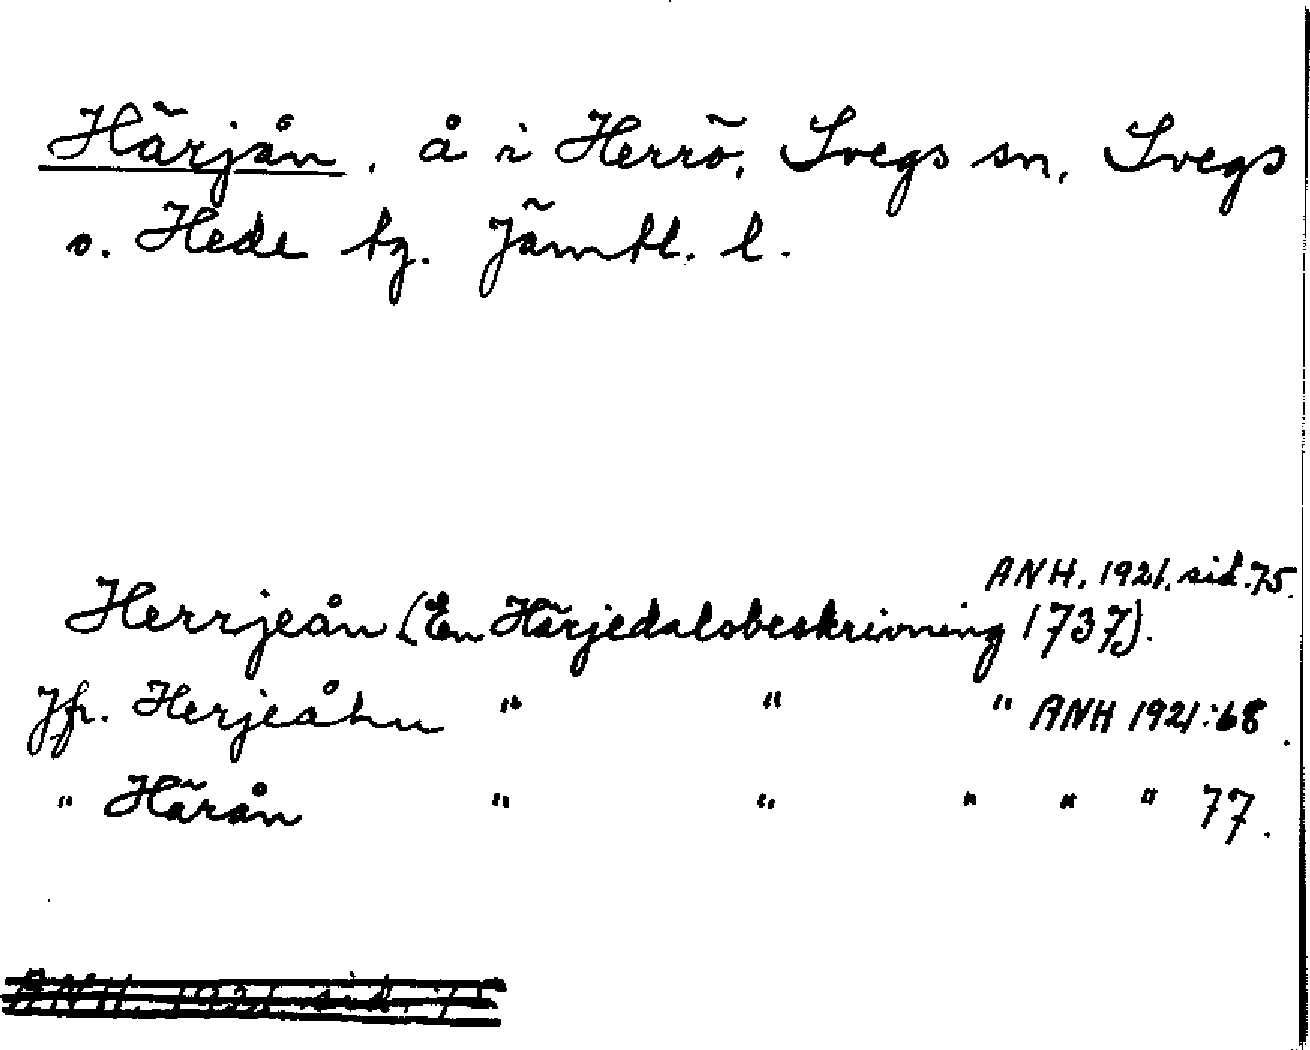 Härjån, å i Herrö, Svegs sn, Svegs
o. Hede tg. Jämtl. l.
ANH. 1921. sid. 75.
Herrjeån (En Härjedalsbeskrivning 1737).
Jfr. Herjeåhn " " " ANH 1921:68.
" Härån " " " " " 77.
ANH. 1921 sid. 75